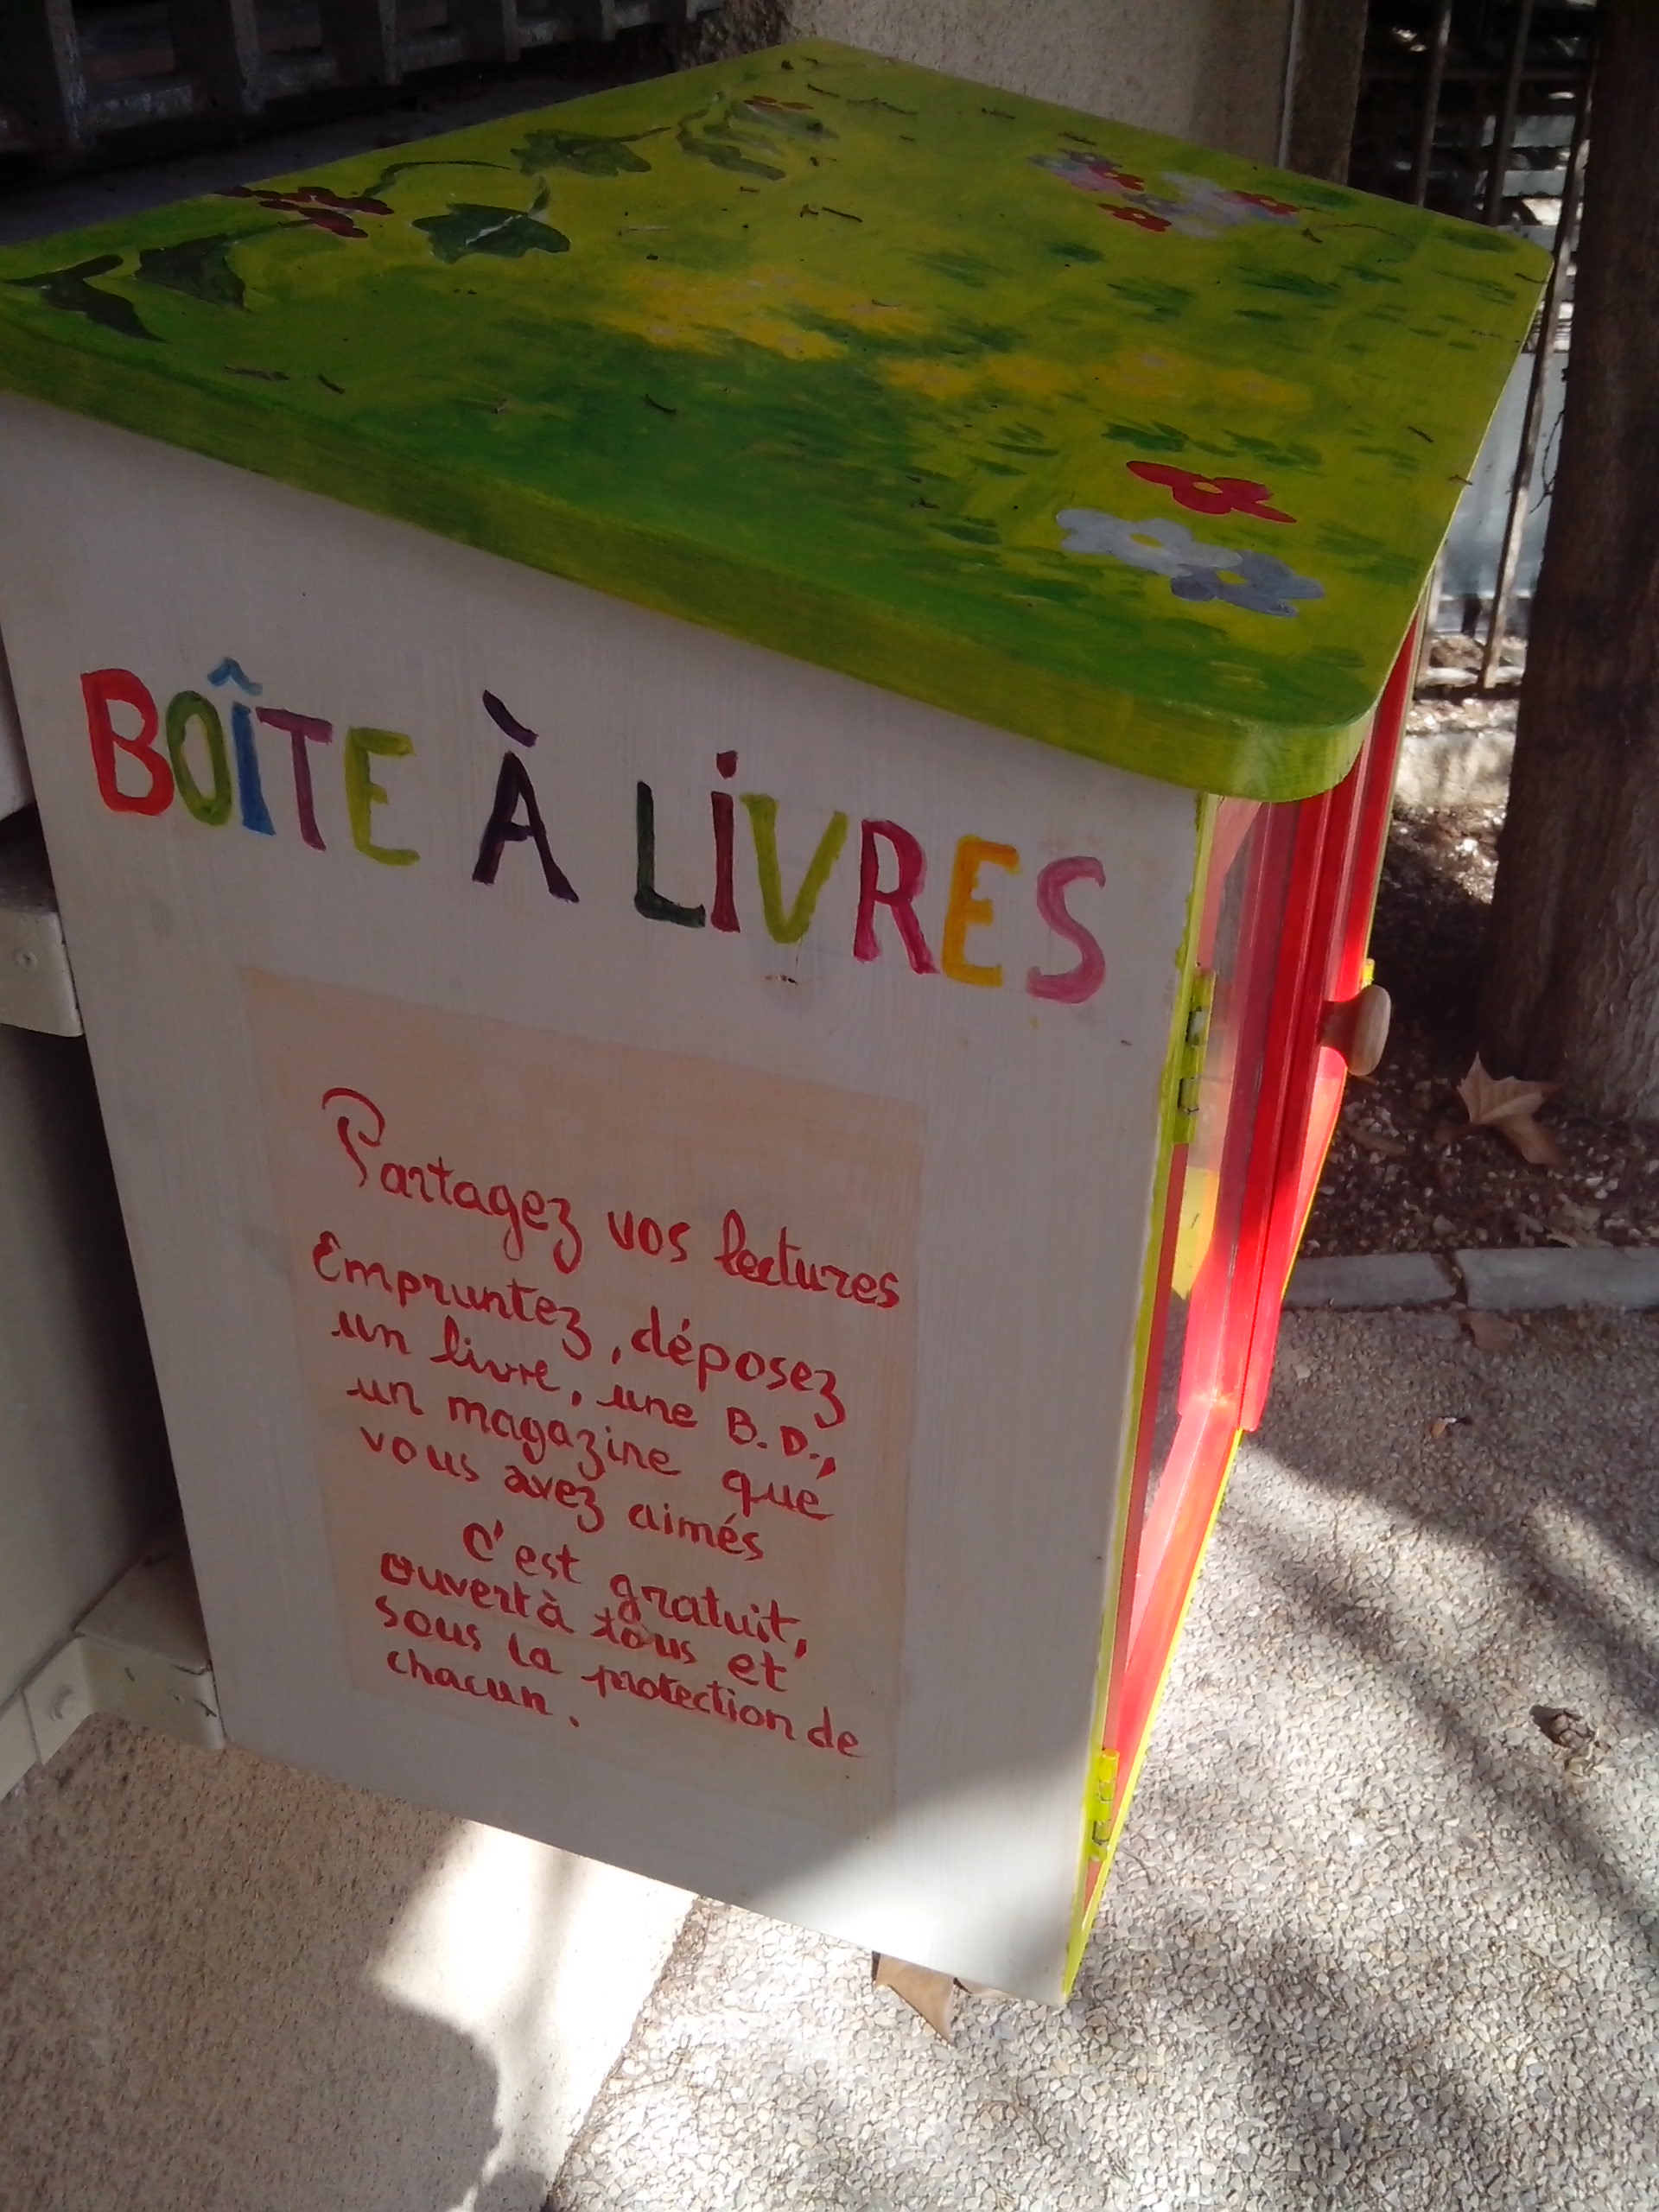 BOÎTE À LIVRES
Partagez vos lectures
Empruntez, déposez
un livre, une B.D.,
un magazine que
vous avez aimés
C'est gratuit,
ouvert à tous et
sous la protection de
chacun.